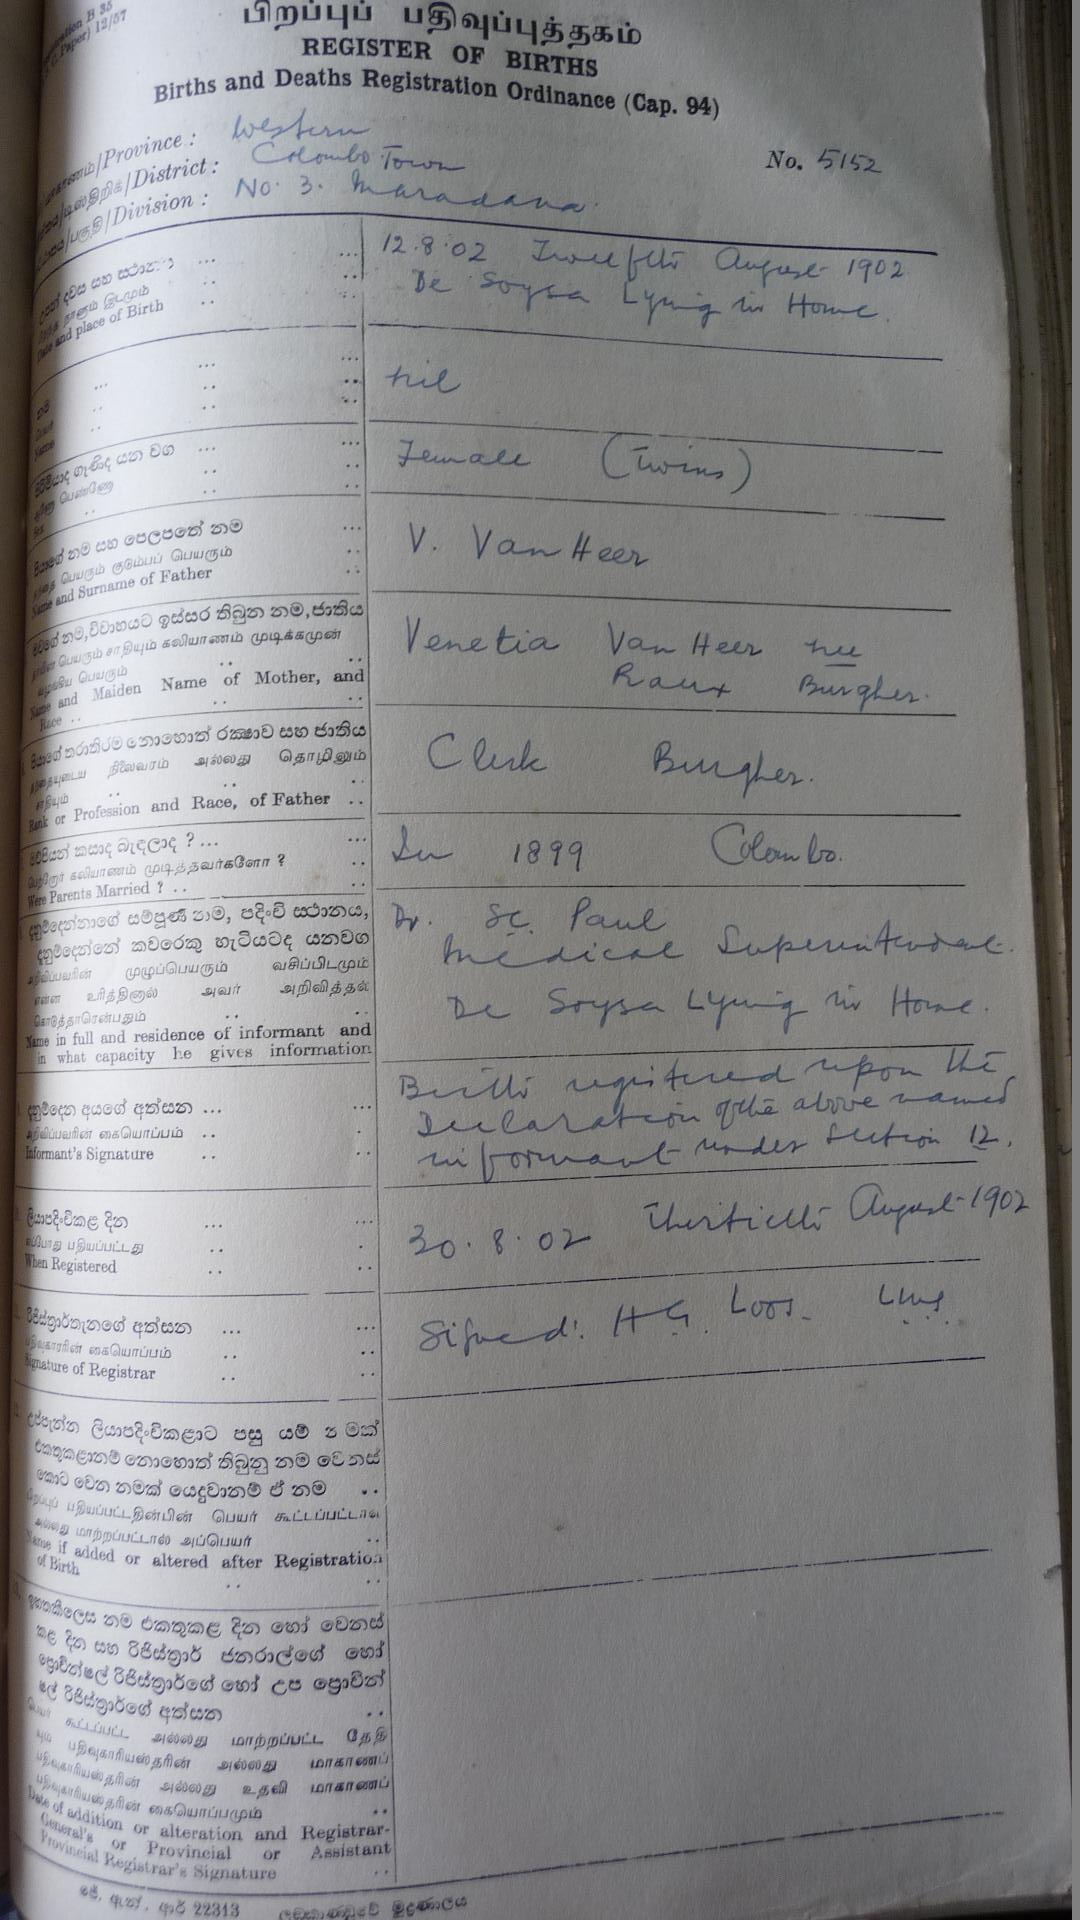 பிறப்புப் பதிவுப்புத்தகம்
REGISTER OF BIRTHS
Births and Deaths Registration Ordinance (Cap. 94)
B 35
Paper) 12/57
Province : Western
No. 5152
District : Colombo Town
Division : No. 3. Maradana
දවස සහ ස්ථානය
Date and place of Birth
12.8.02 Twelfth August 1902
De Soysa Lying in Home.
නම
Name
nil
ගැණිද යන වග
Sex
Female (Twins)
නම සහ පෙලපතේ නම
பெயரும் குடும்பப் பெயரும்
Name and Surname of Father
V. Van Heer
නම, විවාහයට ඉස්සර තිබුන නම, ජාතිය
பெயரும் சாதியும் கலியாணம் முடிக்கமுன்
வழங்கிய பெயரும்
Name and Maiden Name of Mother, and
Race ..
Venetia Van Heer nee
Raux Burgher.
පියාගේ තරාතිරම නොහොත් රක්ෂාව සහ ජාතිය
நிலைவரம் அல்லது தொழிலும்
சாதியும்
Rank or Profession and Race, of Father ..
Clerk Burgher.
කසාද බැඳලාද ? ...
பெற்றோர் கலியாணம் முடித்தவர்களோ ?
Were Parents Married ? ..
In 1899 Colombo.
දනුම්දෙන්නාගේ සම්පූර්ණ නාම, පදිංචි ස්ථානය,
දනුම්දෙන්නේ කවරෙකු හැටියටද යනවග
அறிவிப்பவரின் முழுப்பெயரும் வசிப்பிடமும்
என்ன உரித்தினால் அவர் அறிவித்தல்
கொடுத்தாரென்பதும்
Name in full and residence of informant and
in what capacity he gives information
Dr. St. Paul
Medical Superintendent.
De Soysa Lying in Home.
දනුම්දෙන අයගේ අත්සන ...
அறிவிப்பவரின் கையொப்பம் ..
Informant's Signature
Birth registered upon the
Declaration of the above named
informant under Section 12.
ලියාපදිංචිකළ දින
எப்போது பதியப்பட்டது
When Registered
30.8.02 Thirtieth August 1902
රිජිස්ත්‍රාර්තැනගේ අත්සන ...
பதிவுகாரரின் கையொப்பம்
Signature of Registrar
Signed: H G. Loos.
උප්පැන්න ලියාපදිංචිකළාට පසු යම් නමක්
එකතුකළානම් නොහොත් තිබුනු නම වෙනස්
කොට වෙන නමක් යෙදුවානම් ඒ නම
பிறப்புப் பதியப்பட்டதின்பின் பெயர் கூட்டப்பட்டால்
அல்லது மாற்றப்பட்டால் அப்பெயர்
Name if added or altered after Registration
of Birth
ඉහතකීලෙස නම එකතුකළ දින හෝ වෙනස්
කළ දින සහ රිජිස්ත්‍රාර් ජනරාල්ගේ හෝ
ප්‍රොවින්ෂල් රිජිස්ත්‍රාර්ගේ හෝ උප ප්‍රොවින්
ෂල් රිජිස්ත්‍රාර්ගේ අත්සන
பெயர் கூட்டப்பட்ட அல்லது மாற்றப்பட்ட தேதி
யும் பதிவுகாரியஸ்தரின் அல்லது மாகாணப்
பதிவுகாரியஸ்தரின் அல்லது உதவி மாகாணப்
பதிவுகாரியஸ்தரின் கையொப்பமும்
Date of addition or alteration and Registrar-
General's or Provincial or Assistant
Provincial Registrar's Signature
ජේ. ඇන්. ආර් 22313 ලංකාණ්ඩුවේ මුද්‍රණාලය